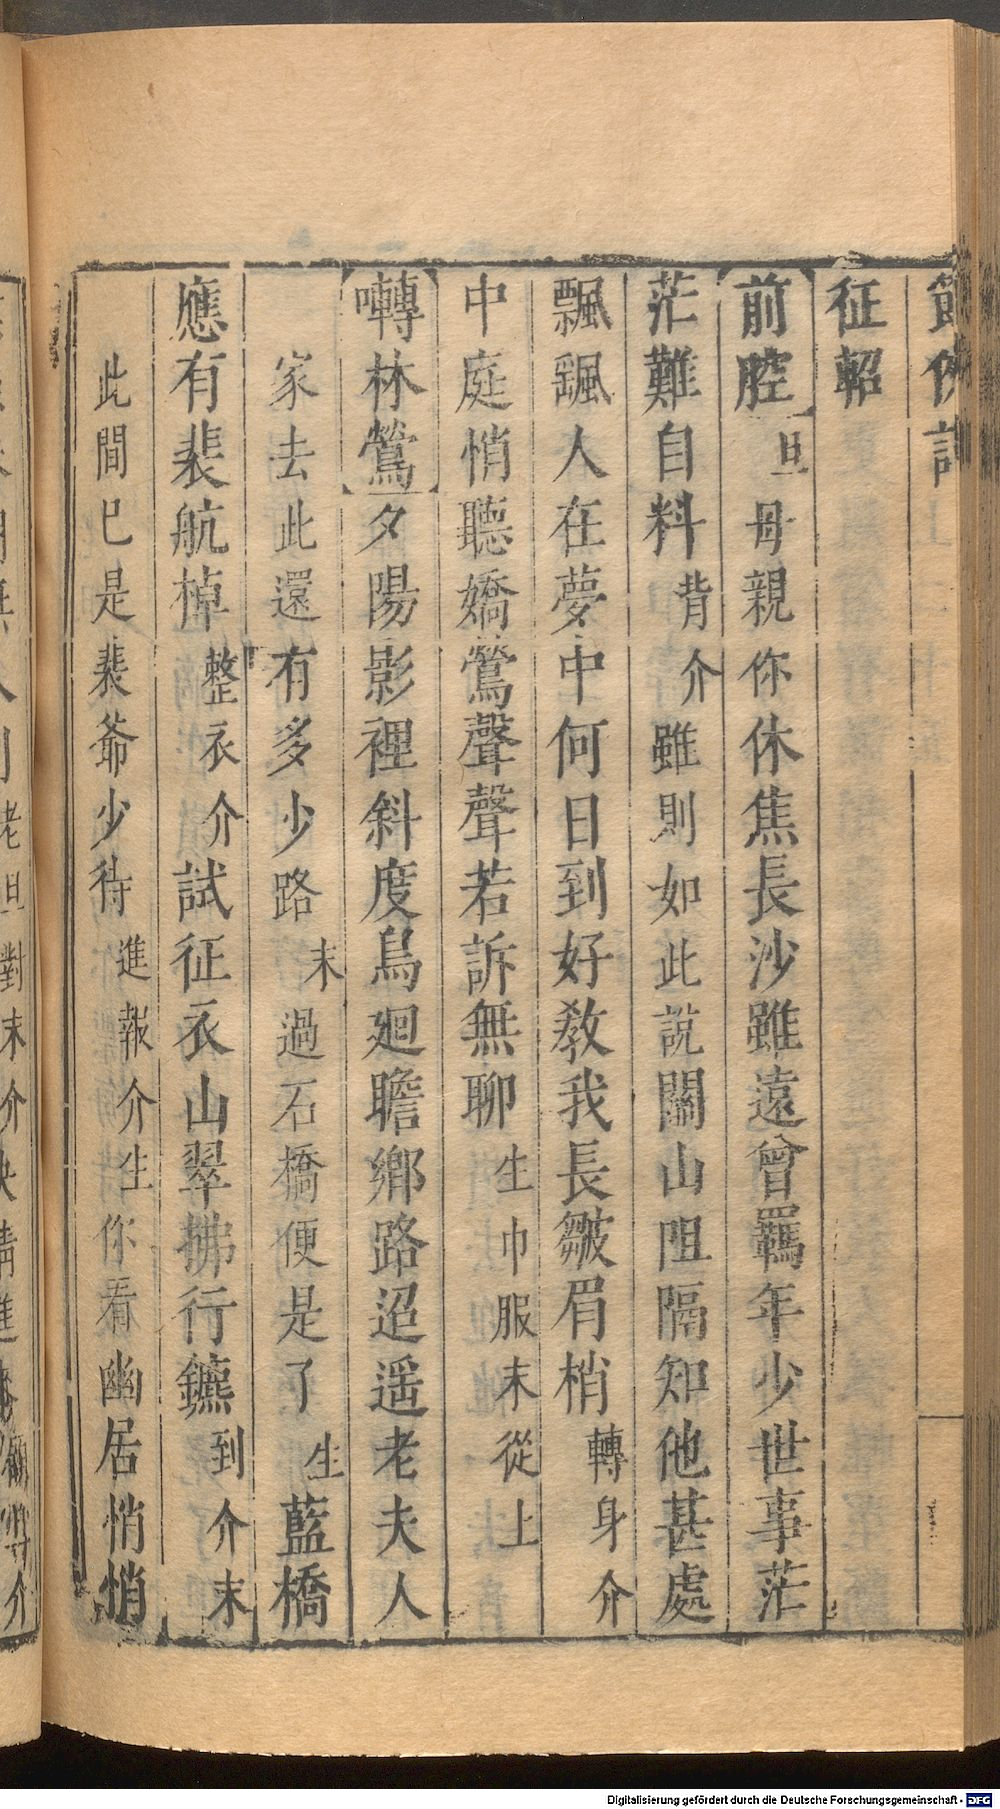 征軺
前腔旦母親你休焦長沙雖遠曾羈年少世事茫
茫難自料背介雖則如此說關山阻隔知他甚處
飄颻人在夢中何日到好教我長皺眉梢轉身介
中庭悄聽嬌鶯聲聲若訴無聊生巾服末從上
囀林鶯夕陽影裡斜度鳥廻瞻鄉路迢遥老夫人
家去此還有多少路末過石橋便是了生藍橋
應有裴航棹整衣介試征衣山翠拂行鑣到介末
此間已是裴爺少待進報介生你看幽居悄悄
Digitalisierung gefördert durch die Deutsche Forschungsgemeinschaft - DFG